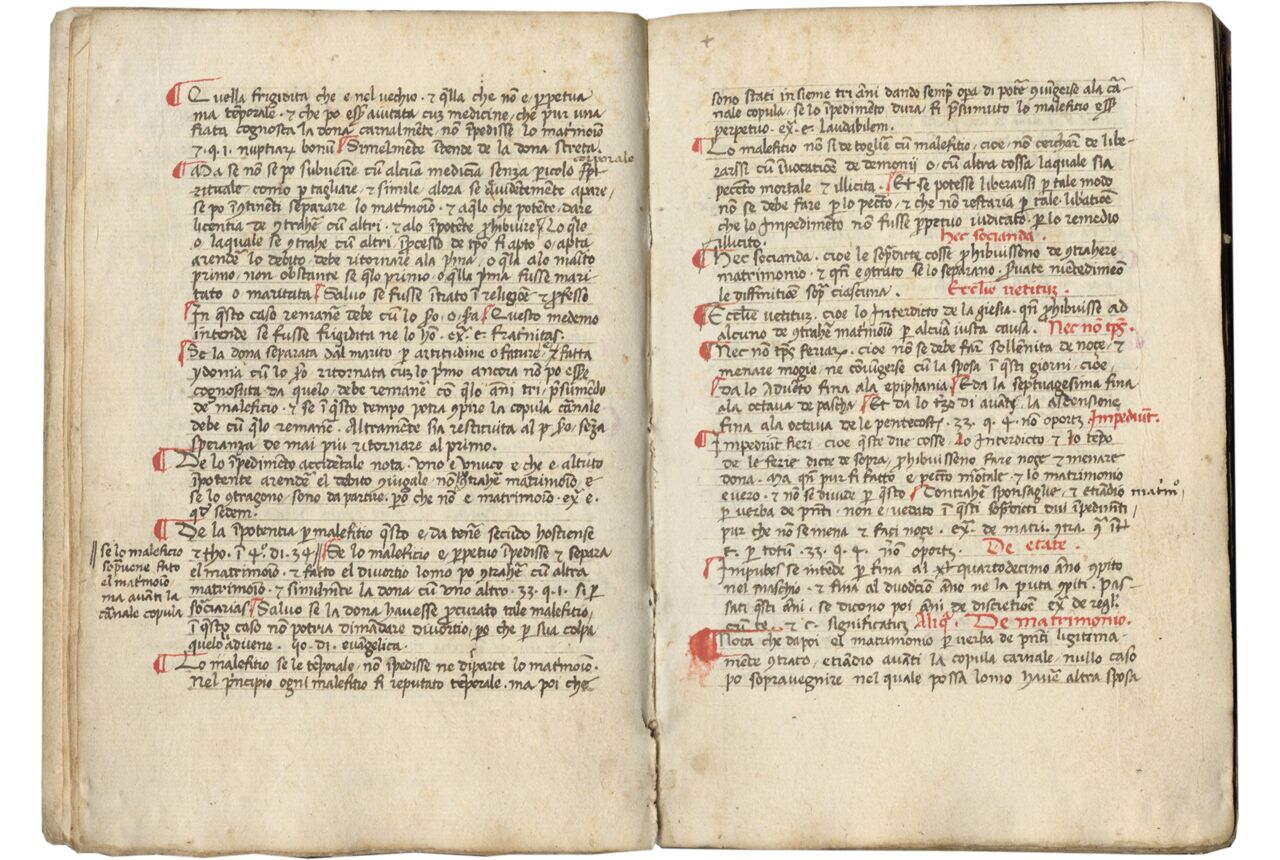 Quella frigidita che e nel vechio · ⁊ q̃lla che nõ e ꝑpetua
ma tẽporale · ⁊ che po ess̃ aiutata cuȝ medicine, che pur una
fiata cognosca la dona carnalmẽte, nõ ĩpedisse lo mat̃moĩo
Simelmẽte ĩtende de la dona streta.
corporale
Ma se nõ se po subuenire cũ alcũa medicĩa senza ꝑicolo
rituale como ꝑ tagliare, ⁊ simile, alora se euidẽtemẽte apare,
se po ĩcõtinẽti separare lo mat̃moĩo · ⁊ aq̃lo che potẽte, dare
licentia de 9trahẽ cũ altri · ⁊ alo ĩpotẽte ꝓhibuire Lo q̃lo
o laquale se 9trahe cũ altri, ĩ ꝓcesso de tꝑo fi apto o apta
arende lo debito, debe ritornare ala p̃ma, o q̃lla alo maĩto
primo, non obstante se q̃lo primo, o q̃lla p̃ma fusse mari
tato o maritata Saluo se fusse ĩtrato ĩ religiõe ⁊ ꝓfesso
In q̃sto caso remanẽ debe cũ lo Questo medemo
intende se fusse frigidita ne lo hõ. ex̃. e. Frat̃nitas.
Se la dona separata dal marito ꝑ artitudine o fatture, fatta
ydonia cũ lo ritornata cuȝ lo p̃mo ancora nõ po ess̃e
cognosuta da quelo, debe remanẽ cõ q̃lo ãni tri, p̃sumẽdo
de maleficio · ⁊ se ĩ q̃sto tempo potra 9pire la copula c̃arnale
debe cũ q̃lo remanẽ. Altramẽte sia restituita al seza
speranza de mai piu ritornare al primo.
De lo ĩpedimẽto accidẽtale nota. Uno e unuco e che e altuto
ĩpotente arendẽ el debito 9iugale, nõ 9trahẽ matrimoĩo, e
se lo 9tragono, sono da partire. ꝑo che nõ e matrimoĩo. ex̃. e.
qd̃ sedem.
De la ĩpotentia ꝑ malefitio q̃sto e, da tenẽ secũdo hostiense
⁊ tho. ĩ 4º. di. 34 Se lo maleficio e ꝑpetuo ĩpedisse ⁊ separa
se lo maleficio
sopuene fato
el matrimoĩo
ma auãti la
cãnale copula
el matrimoĩo · ⁊ fatto el diuortio lomo po 9trahẽ cũ altra
matrimoĩo · ⁊ similmẽte la dona cũ uno altro. 33. q. 1. si ꝑ
sortiarias Saluo se la dona hauesse ꝓcurato tale maleficio,
ĩ q̃sto caso nõ potria dimãdare diuortio, po che ꝑ sua colpa
quelo aduene. di. euãgelica.
Lo malefitio se le tẽporale, nõ ĩpedisse ne diparte lo matimoĩo.
Nel p̃ncipio ogni malefitio fi reputato tẽporale. ma poi che
sono stati insieme tri ãni dando semꝑ opa di pote 9iungerse ala cã
nale copula, se lo ĩpedimẽto dura fi p̃sumuto lo maleficio ess̃e
perpetuo. ex̃. e. laudabilem.
Lo maleficio nõ si de toglie cũ malefitio, cioe, nõ cerchar̃ de libe-
rarssi cũ ĩuocatiõe de demonij o, cũ altra cossa laquale sia
pec̃cto mortale ⁊ illicita. Et se potesse liberarssi ꝑ tale modo
nõ se debe fare ꝑ lo pec̃to, ⁊ che nõ restaria ꝑ tale libatiõe
che lo Impedimẽto nõ fusse ꝑpetuo iudicato. ꝑ lo remedio
illicito. Hec socianda.
Hec socianda. cioe le sop̃dicte cosse ꝓhibuisseno de 9trahere
matrimonio. ⁊ qñ e 9trato se lo separano.
le diffinitiõe sop̃ ciascuna. Ecclie vetituȝ.
Ecclie vetituȝ. cioe lo Interdicto de la giesia. qñ ꝓhibuisse ad
alcuno de 9trahẽ mat̃moĩo ꝑ alcũa iusta causa. Nec nõ tꝑs.
Nec nõ tꝑs feriarꝝ. cioe nõ se debe far̃ sollẽnita de noçe, ⁊
menare mogie, ne cõuigerse cũ la sposa ĩ q̃sti giorni, cioe
da lo aduẽto fina ala epiphania Eda la septuagesima fina
ala octaua de pascha Et da lo t̃zo dì auãti la ascensione
fina ala octaua de le pentecoste. 33. q. 4. nõ oportȝ. Impediũt.
Impediũt fieri cioe q̃ste due cosse. Lo Interdicto ⁊ lo tẽpo
de le ferie dicte de sopra, ꝓhibuisseno fare noçe ⁊ menare
dona. Ma qñ pur fi fatto e pec̃to mõtale ⁊ lo matrimonio
e uero · ⁊ nõ se diuide ꝑ q̃sto Contrahẽ sponsaglie, ⁊ etiãdio matm̃o
ꝑ uerba de p̃nti. non e uedato ĩ q̃sti dui ĩpedim̃ti
pur che nõ se mena ⁊ faci noçe. ex̃. de matri. 9tra.
e. ꝑ totũ. 33. q. 4. nõn oportȝ. De etate.
Impubes se intẽde ꝑ fina al quartodecimo ãno 9pito
nel maschio, ⁊ fina al duodeciõ ãno ne la puta 9piti. Pas-
sati q̃sti ãni, se dicono poi ãni de discretiõe ex̃ de reg̃l.
cũ te. ⁊ c. significatuȝ Aliq̃. De matrimonio.
Nota che dapoi el matrimonio ꝑ uerba de p̃nti ligittima-
mẽte 9trato, etiãdio auãti la copula carnale, nullo caso
po sopravegnire nel quale possa lomo hauẽ altra sposa